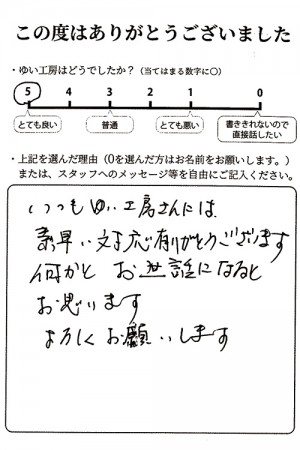 この度はありがとうございました
・ゆい工房はどうでしたか？（当てはまる数字に〇）
5 4 3 2 1 0
とても良い 普通 とても悪い 書ききれないので直接話したい
・上記を選んだ理由（0を選んだ方はお名前をお願いします。）
または、スタッフへのメッセージ等を自由にご記入ください。
いつもゆい工房さんには
素早い対応有りがとうございます
何かと お世話になると
お思います
よろしくお願いします